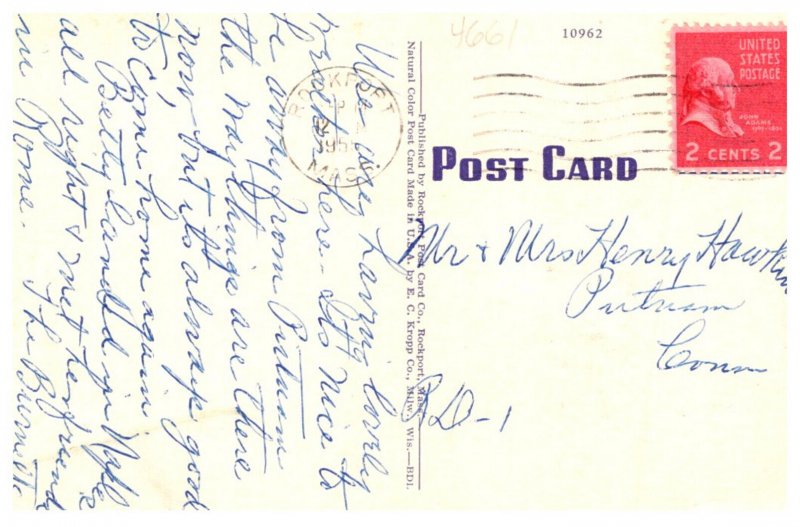 We're having lovely
here. It's nice to
be away from Putnam
the way things are there
now but its always good
to come home again
Betty landed in Naples
all right & met her friends
in Rome.
The Burnetts
4661
10962
ROCKPORT
MASS.
UNITED
STATES
POSTAGE
JOHN
ADAMS
2 CENTS 2
POST CARD
Mr & Mrs Henry Hawkins
Putnam
Conn
RD-1
Published by Rockport Post Card Co., Rockport, Mass.
Natural Color Post Card Made in U.S.A. by E. C. Kropp Co., Milw., Wis.—BDI.